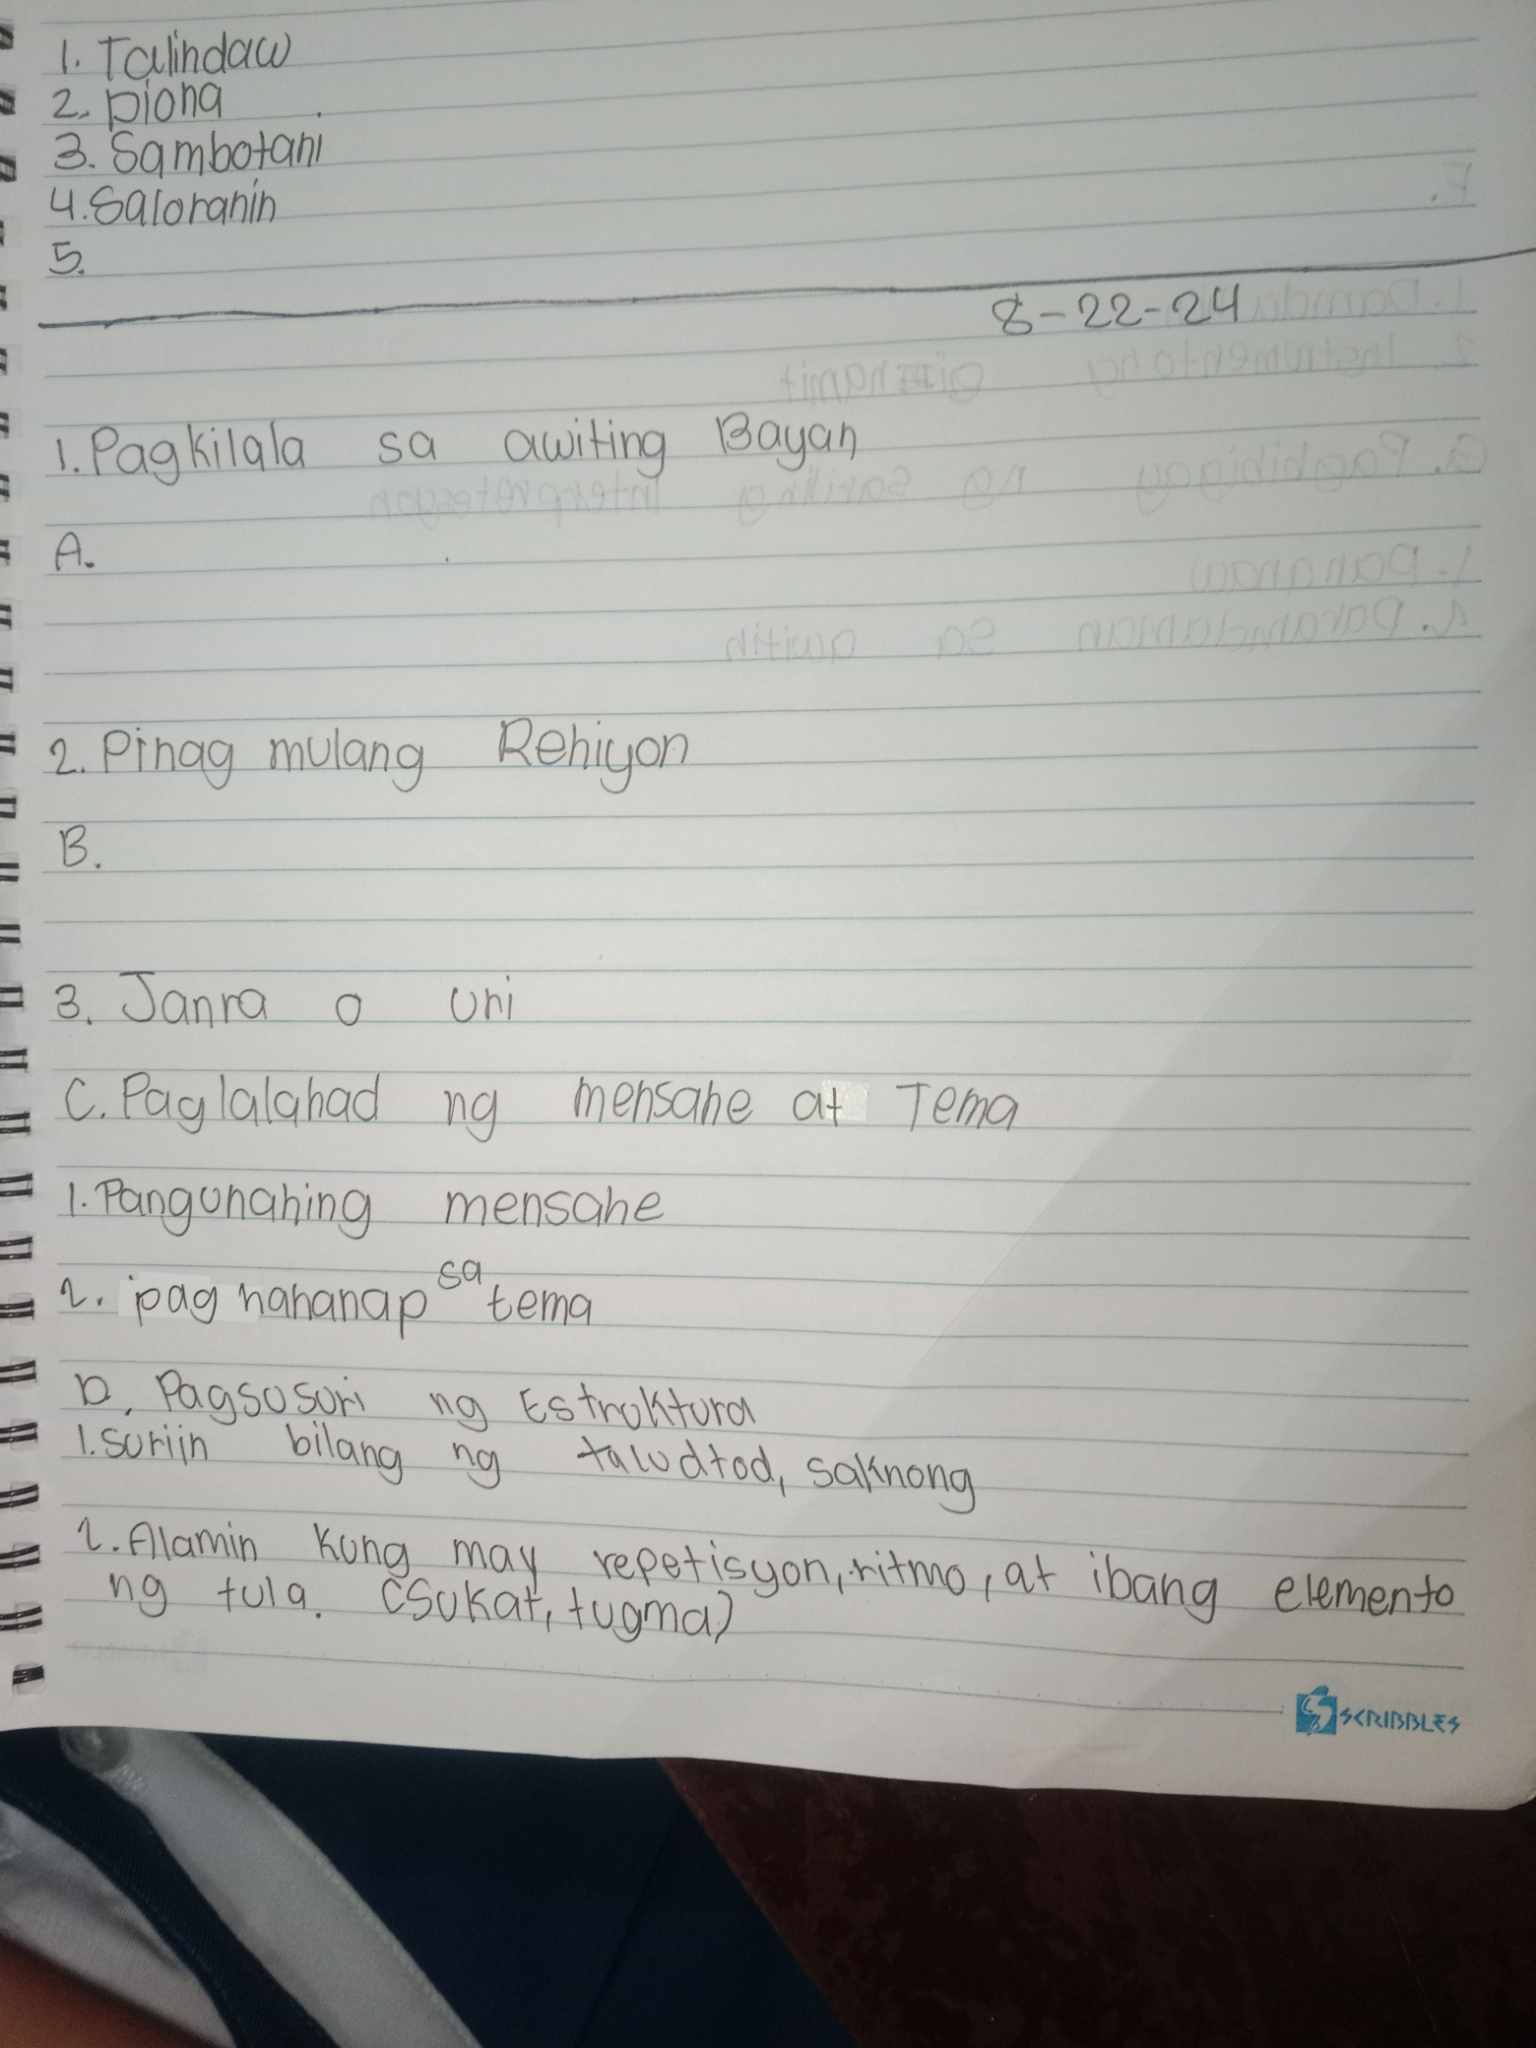 1. Talindaw
2. Diona
3. Sambotani
4. Saloranin
5.
8-22-24
1. Pagkilala sa awiting Bayan
A.
2. Pinag mulang Rehiyon
B.
3. Janra o uri
C. Paglalahad ng mensahe at Tema
1. Pangunahing mensahe
2. ipag hahanap sa tema
D. Pagsusuri ng Estruktura
1. suriin bilang ng taludtod, saknong
2. Alamin kung may repetisyon, ritmo, at ibang elemento
ng tula. (Sukat, tugma)
SCRIBBLES